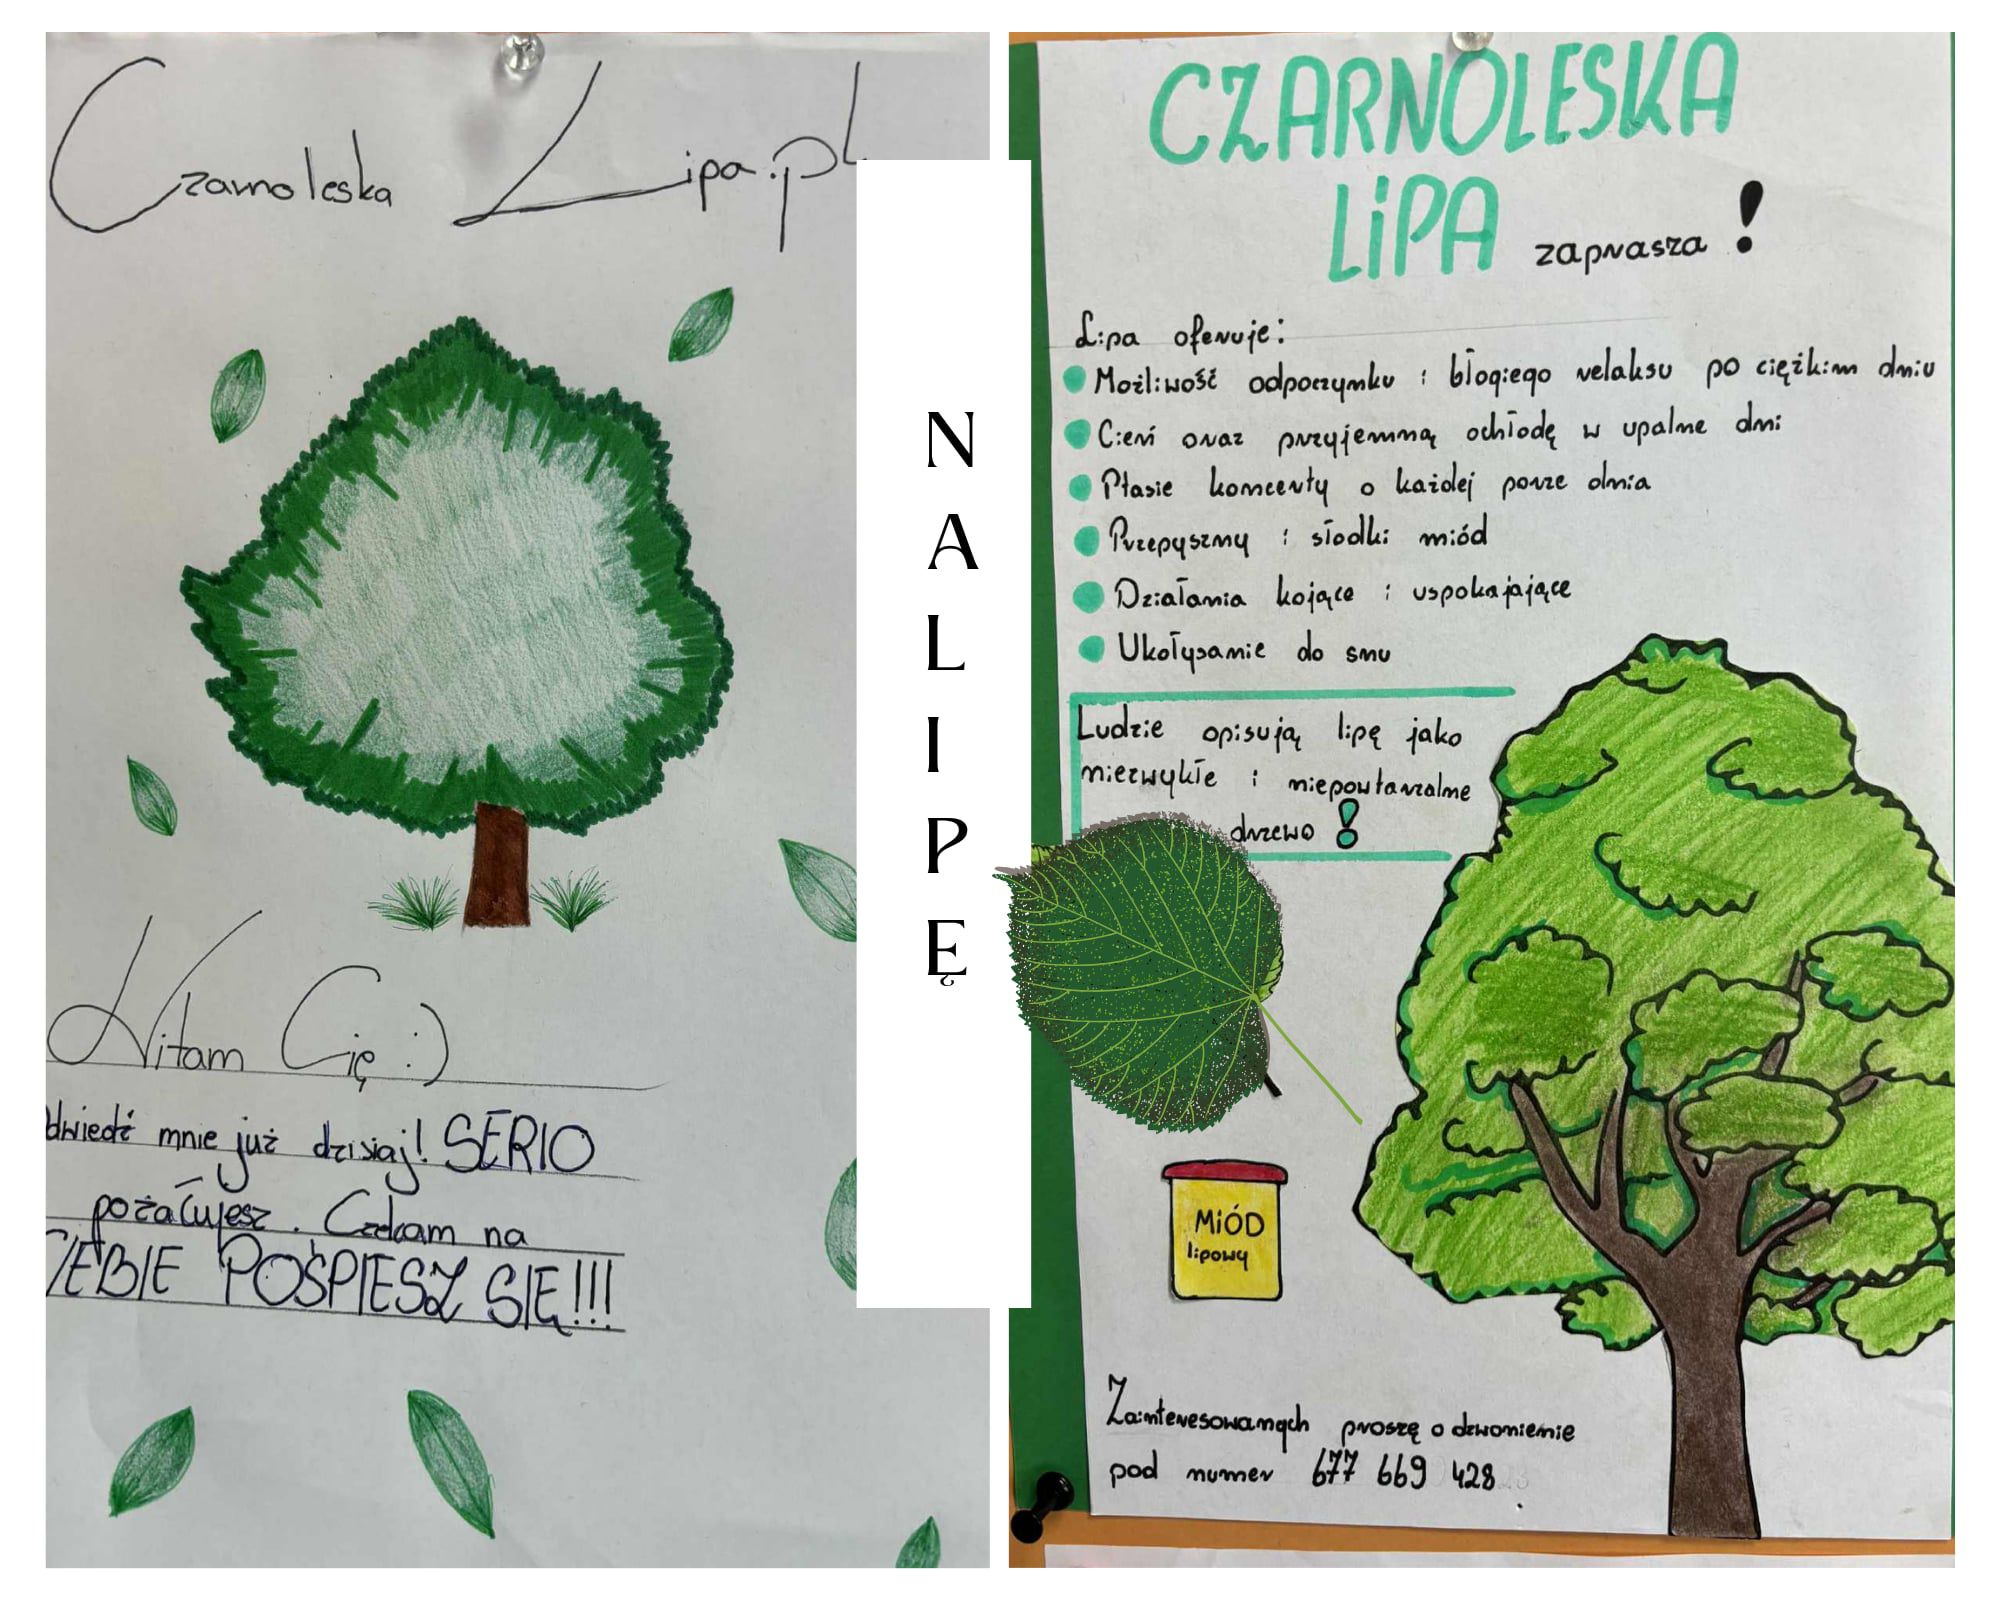 Czarnoleska Lipa.pl
Witam Cię :)
dwiedź mnie już dzisiaj! SERIO
pożałujesz. Czekam na
IEBIE POŚPIESZ SIĘ!!!
NA LIPĘ
CZARNOLESKA
LIPA zaprasza!
Lipa oferuje:
Możliwość odpoczynku i błogiego relaksu po ciężkim dniu
Cień oraz przyjemną ochłodę w upalne dni
Ptasie koncerty o każdej porze dnia
Przepyszny i słodki miód
Działania kojące i uspokajające
Ukołysanie do snu
Ludzie opisują lipę jako
niezwykłe i niepowtarzalne
drzewo!
MIÓD
lipowy
Zainteresowanych proszę o dzwonienie
pod numer 677 669 428